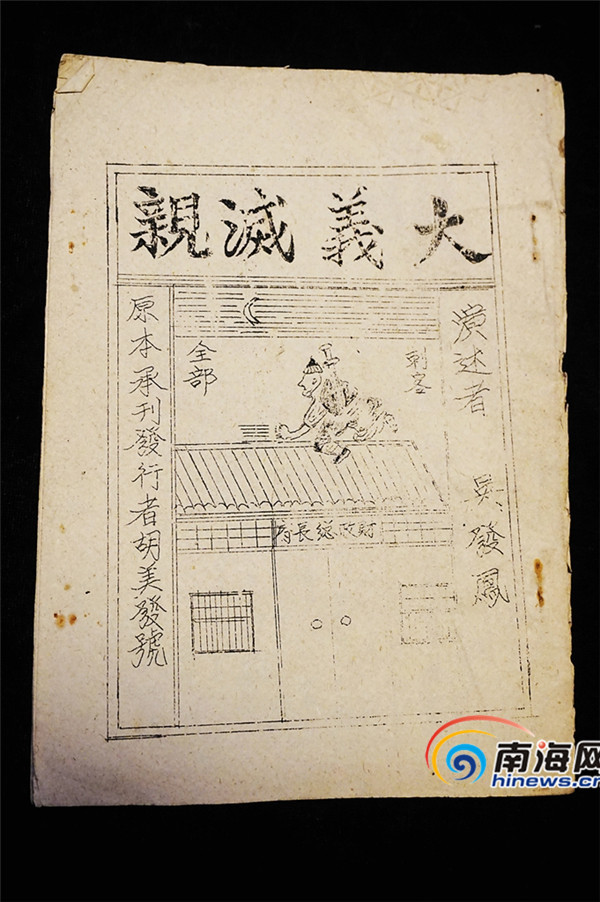 大義滅親
演述者 吳發鳳
刺客
全部
財政總長府
原本承刊發行者胡美發號
南海网
hinews.cn